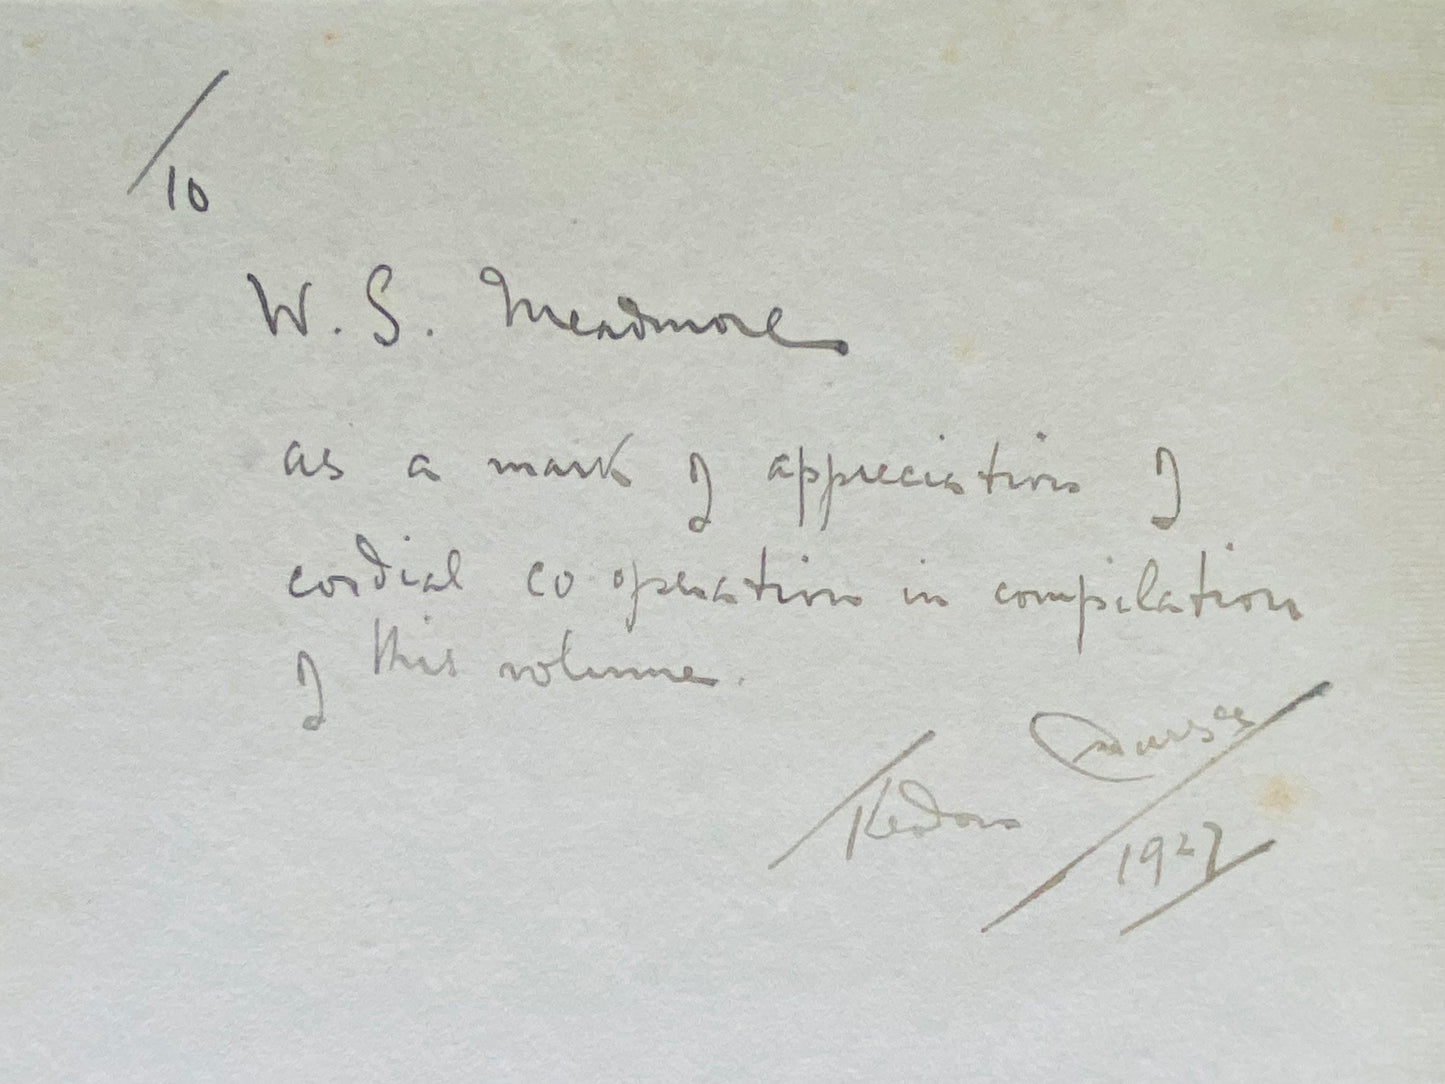 To
W. S. Meadmore
as a mark of appreciation of
cordial co operation in compilation
of this volume.
1927